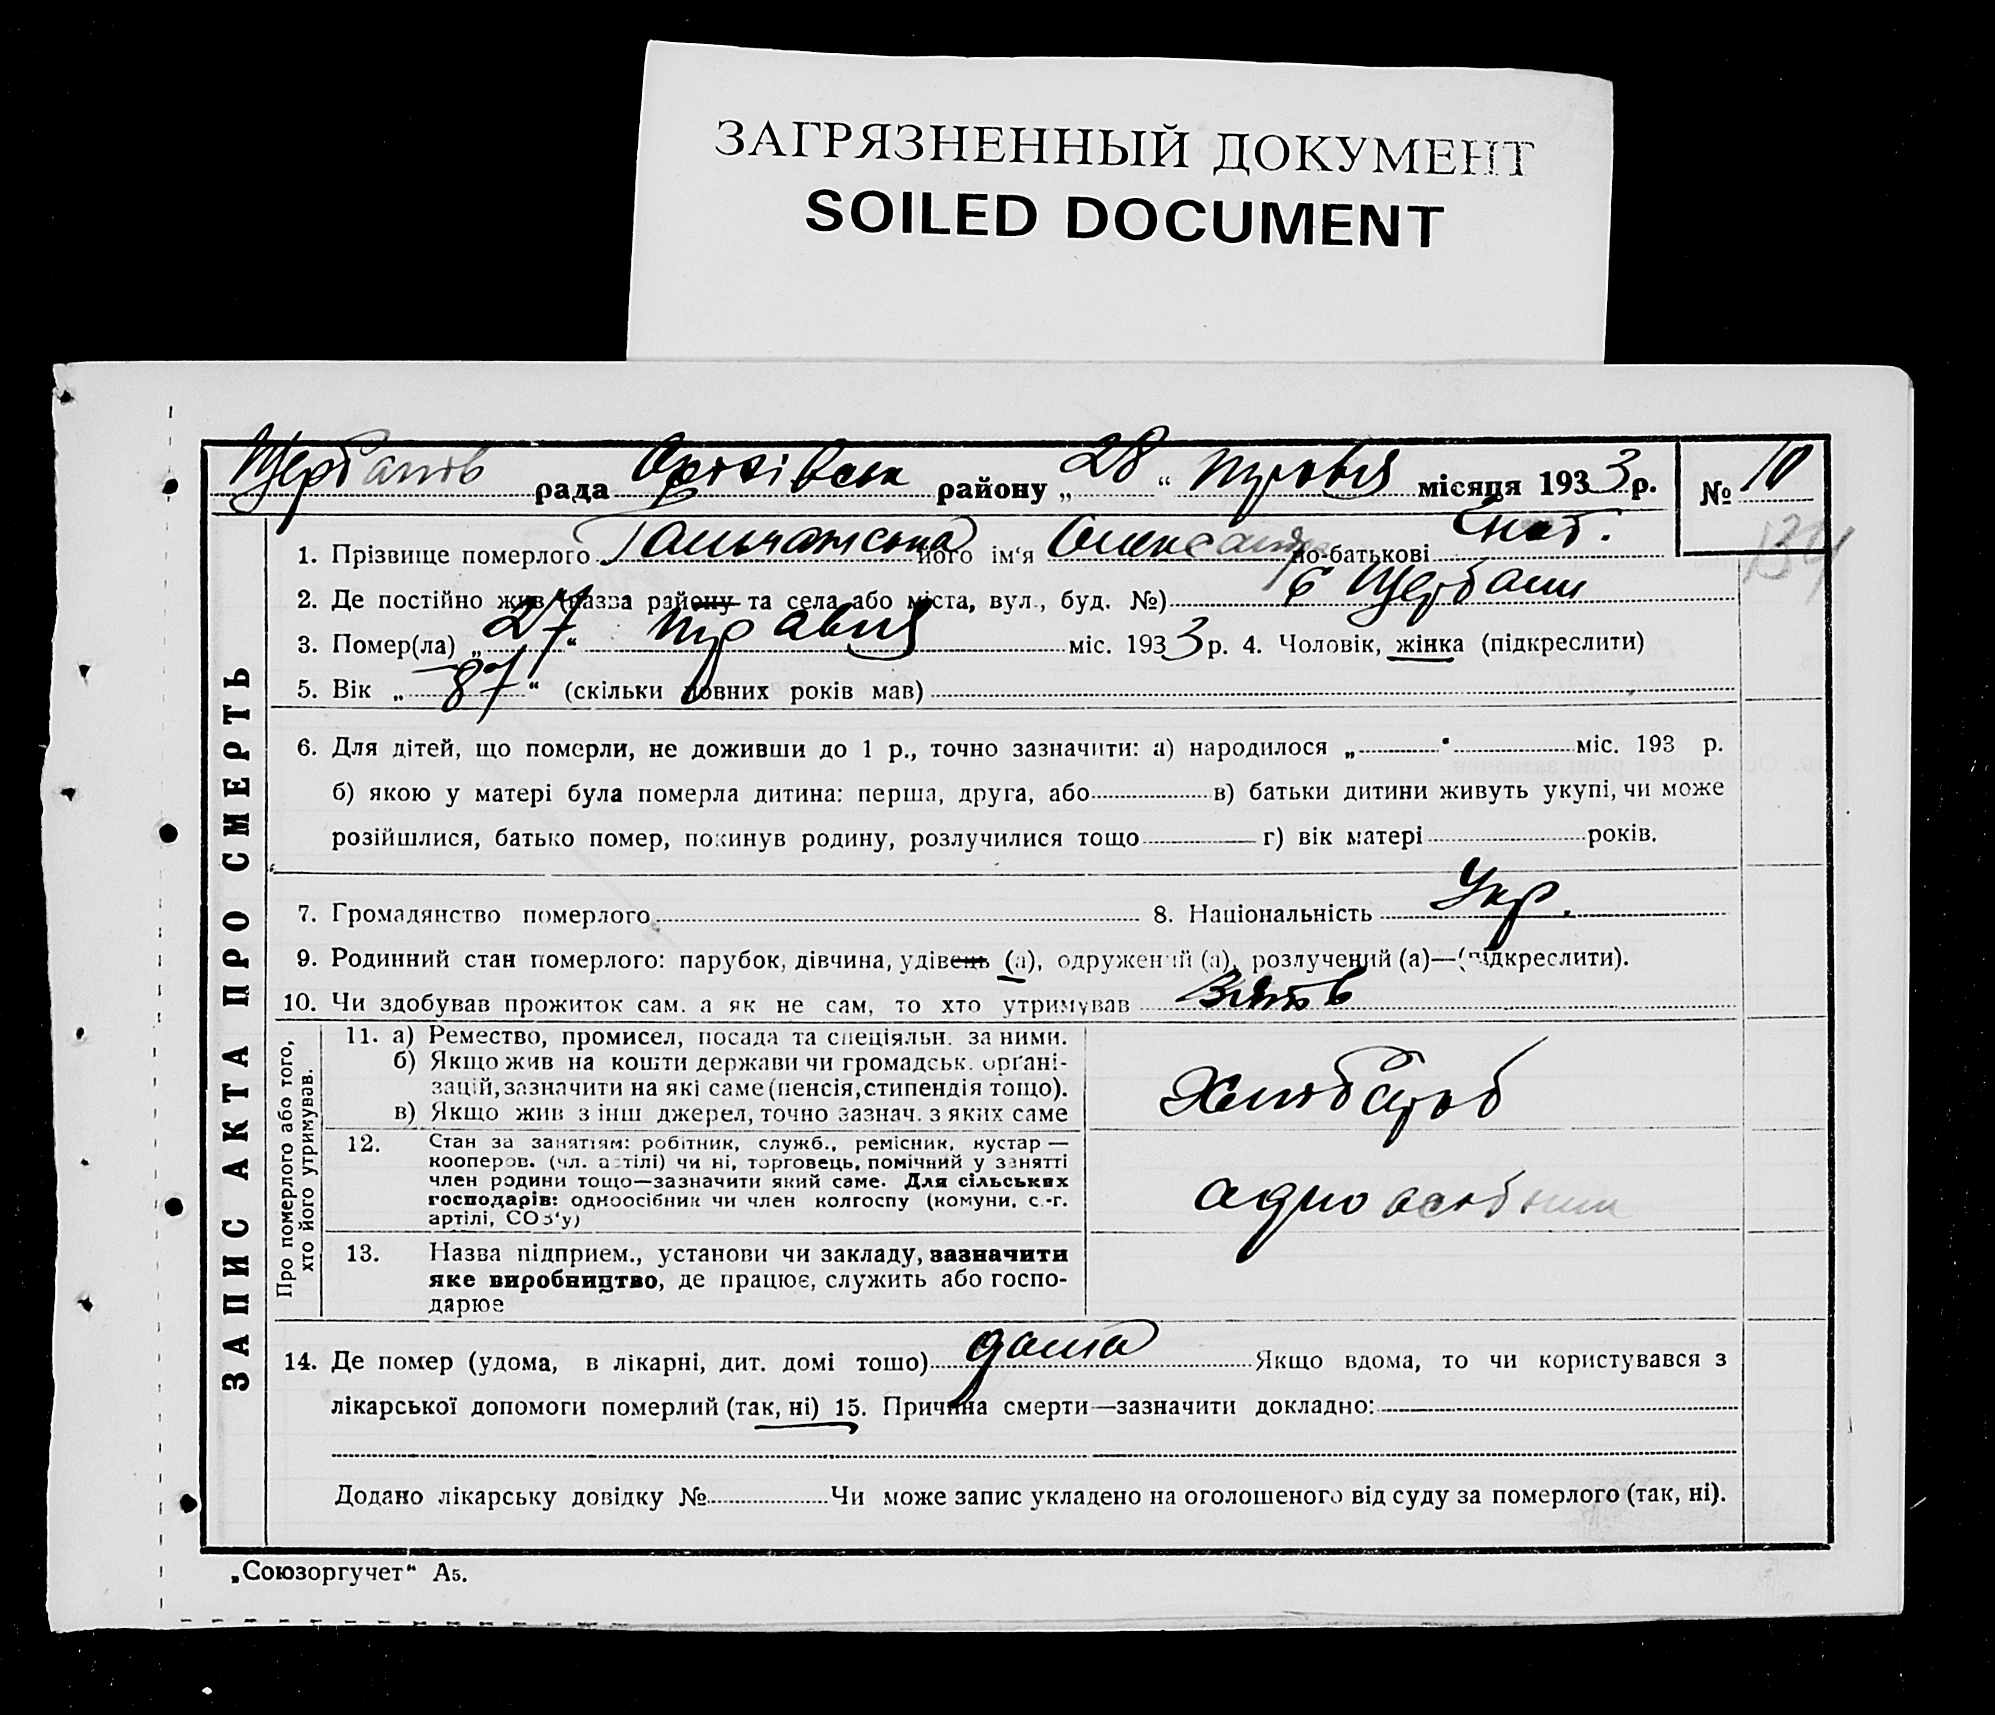 ЗАГРЯЗНЕННЫЙ ДОКУМЕНТ
SOILED DOCUMENT
рада району „28“ травня місяця 1933 р. № 10
134
ЗАПИС АКТА ПРО СМЕРТЬ
1. Прізвище померлого його ім‘я Олександра по-батькові
2. Де постійно жив (назва району та села або міста, вул., буд. №) с Щербани
3. Помер(ла) „27“ травня міс. 1933 р. 4. Чоловік, жінка (підкреслити)
5. Вік „87“ (скільки повних років мав)
6. Для дітей, що померли, не доживши до 1 р., точно зазначити: а) народилося „ “ міс. 193 р.
б) якою у матері була померла дитина: перша, друга, або в) батьки дитини живуть укупі, чи може
розійшлися, батько помер, покинув родину, розлучилися тощо г) вік матері років.
7. Громадянство померлого 8. Національність Укр.
9. Родинний стан померлого: парубок, дівчина, удівець (а), одружений (а), розлучений (а)—(підкреслити).
10. Чи здобував прожиток сам. а як не сам, то хто утримував
Про померлого або того, хто його утримував.
11. а) Ремество, промисел, посада та спеціяльн. за ними.
б) Якщо жив на кошти держави чи громадськ. орґані-
зацій, зазначити на які саме (пенсія, стипендія тощо).
в) Якщо жив з інш джерел, точно зазнач. з яких саме
Хлібороб
12. Стан за заняттям: робітник, служб., ремісник, кустар —
кооперов. (чл. артілі) чи ні, торговець, помічний у занятті
член родини тощо—зазначити який саме. Для сільських
господарів: одноосібник чи член колгоспу (комуни, с.-г.
артілі, СОЗ‘у)
адноосібник
13. Назва підприєм., установи чи закладу, зазначити
яке виробництво, де працює, служить або госпо-
дарює
14. Де помер (удома, в лікарні, дит. домі тошо) дома Якщо вдома, то чи користувався з
лікарської допомоги померлий (так, ні) 15. Причина смерти—зазначити докладно:
Додано лікарську довідку № Чи може запис укладено на оголошеного від суду за померлого (так, ні).
„Союзоргучет“ А5.